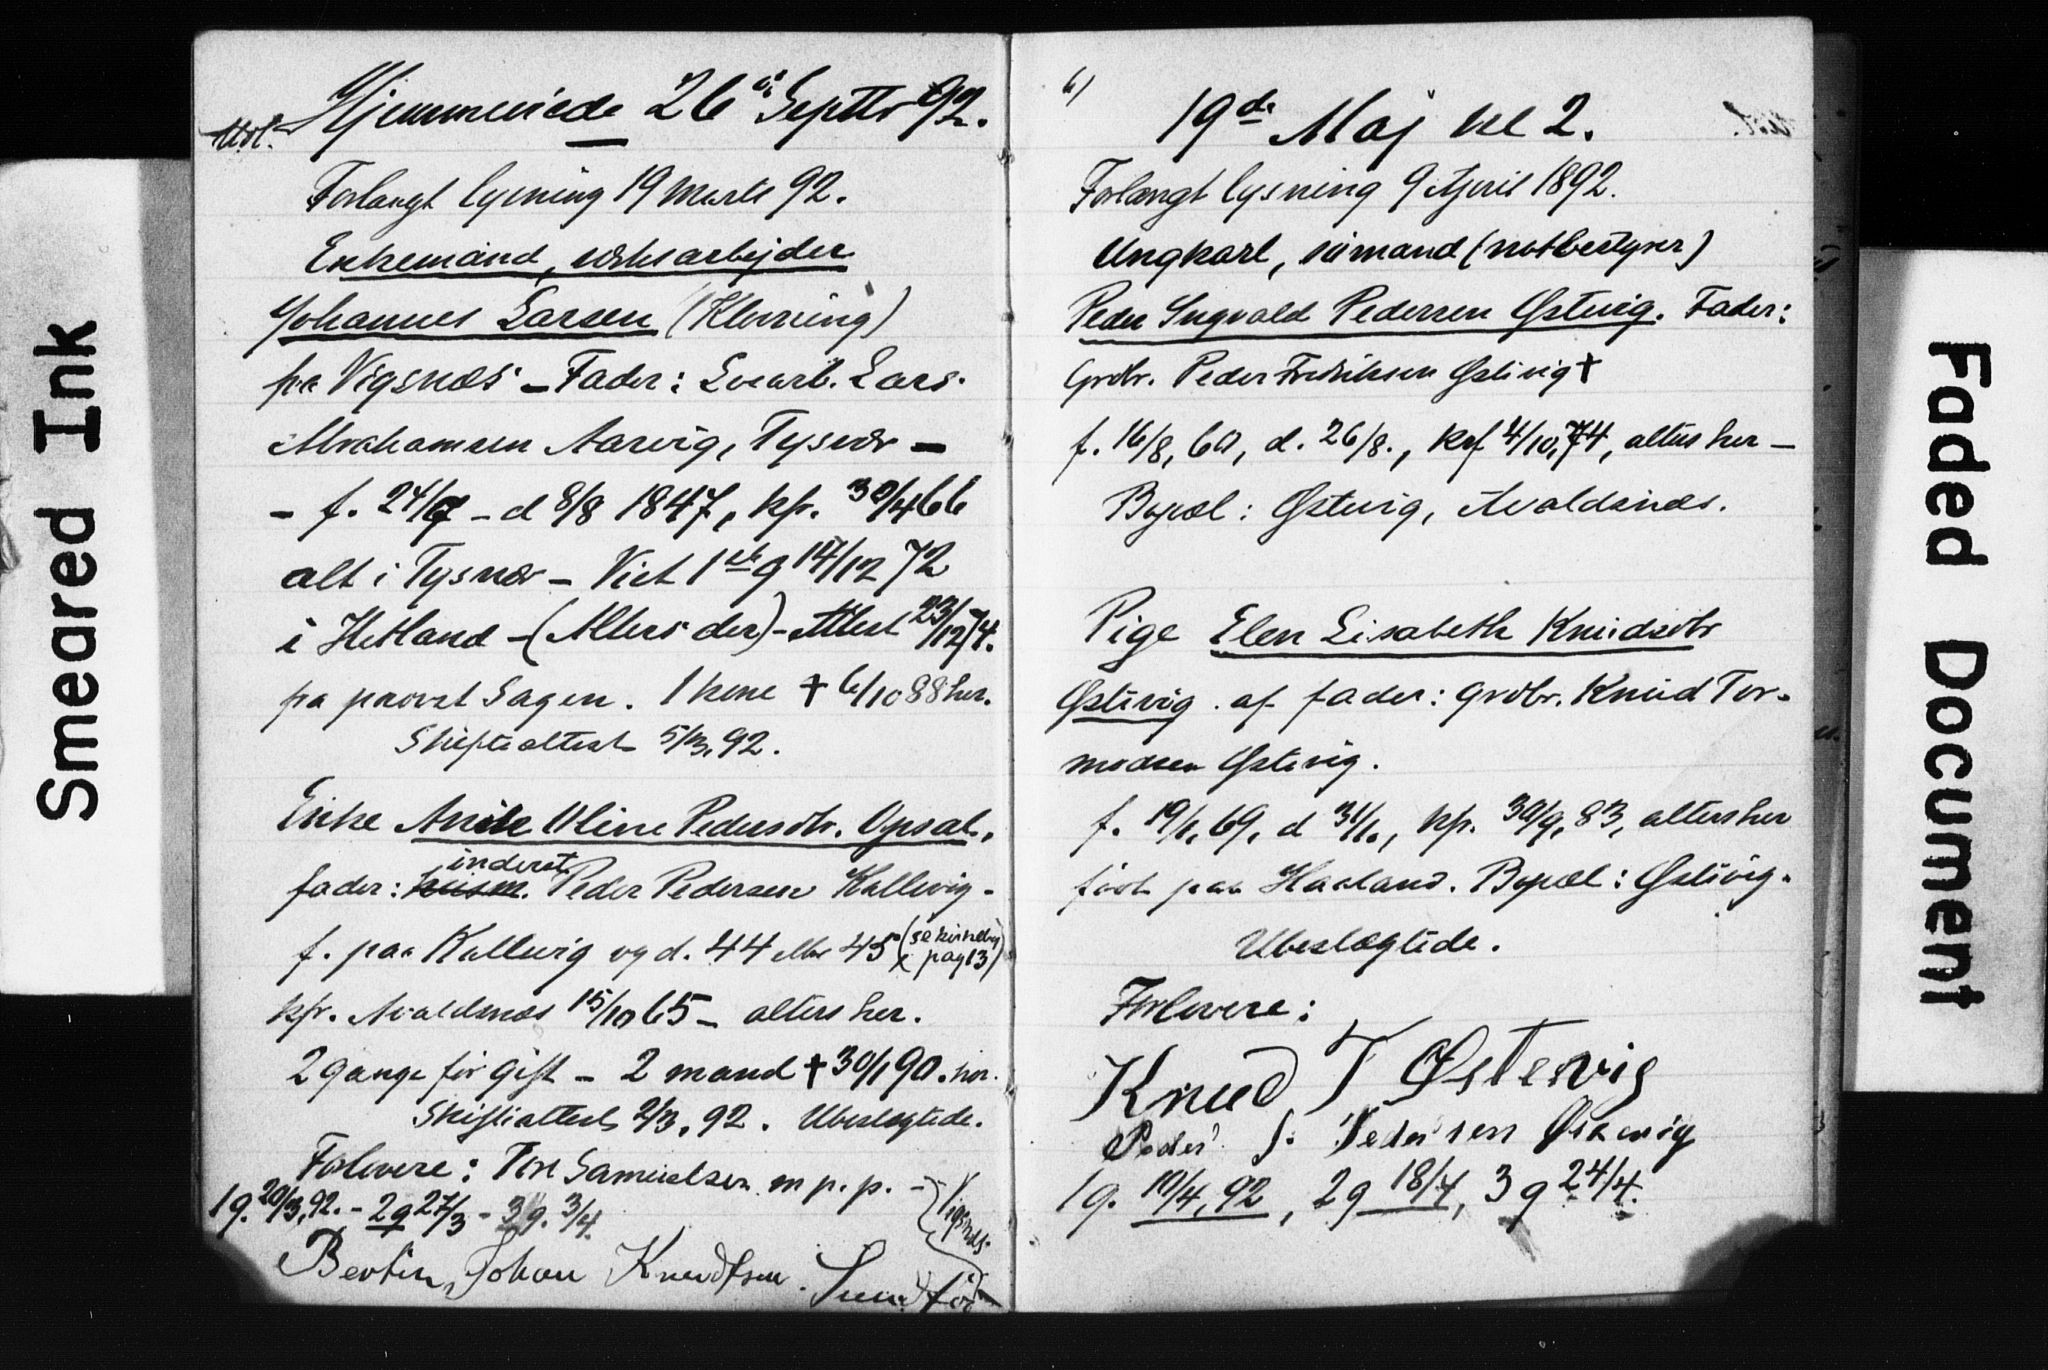 Smeared Ink
Utv. Hjemmeviede 26de Septbr 92.
Forlangt lysning 19 Marts 92.
Enkemand, værksarbejder
Johannes Larsen (Klovning)
fra Vigsnæs - Fader: Løsarb. Lars
Abrahamsen Aarvig, Tysvær -
- f. 24/7 - d 8/8 1847, kfr. 30/4 66
alt i Tysvær - Viet 1ste g 14/12 72
i Hetland - (Alters der) - Attest 23/12 74.
fra provst Sagen. 1 kone † 6/10 88 her.
Skifteattest 5/3, 92.
Enke Anne Oline Pedersdtr. Opsal.
inderst
fader: husm. Peder Pedersen Kallevig -
f. paa Kallevig og d. 44 eller 45 (se kirkebog pag 13)
kfr. Avaldsnæs 15/10 65 - alters her.
2 gange før gift - 2 mand † 30/1 90. her.
Skifteattest 2/3, 92. Ubeslægtede.
Forlovere: Tore Samuelsen m p. p. - Vigsnæs.
1 g. 20/3, 92. - 2 g 27/3 - 3 g. 3/4.
Bertin Johan Knudtsen. Sund för
6)
19de Maj kl 2.
Forlangt lysning 9 April 1892.
Ungkarl, sømand (notbestyrer)
Peder Ingvald Pedersen Østevig. Fader:
Grdbr. Peder Fredriksen Østevig †
f. 16/8, 60, d. 26/8., kf 4/10, 74, alters her -
Bopæl: Østevig, Avaldsnæs.
Pige Elen Lisabeth Knudsdtr
Østevig. af fader: grdbr. Knud Tor-
modsen Østevig.
f. 19/1, 69, d 31/1., kfr. 30/9, 83, alters her
født paa Haaland. Bopæl: Østevig.
Ubeslægtede.
Forlovere:
Knud T Østevig
Peder J. Pedersen Østevig
1 g. 10/4, 92, 2 g 18/4, 3 g 24/4.
Faded Document